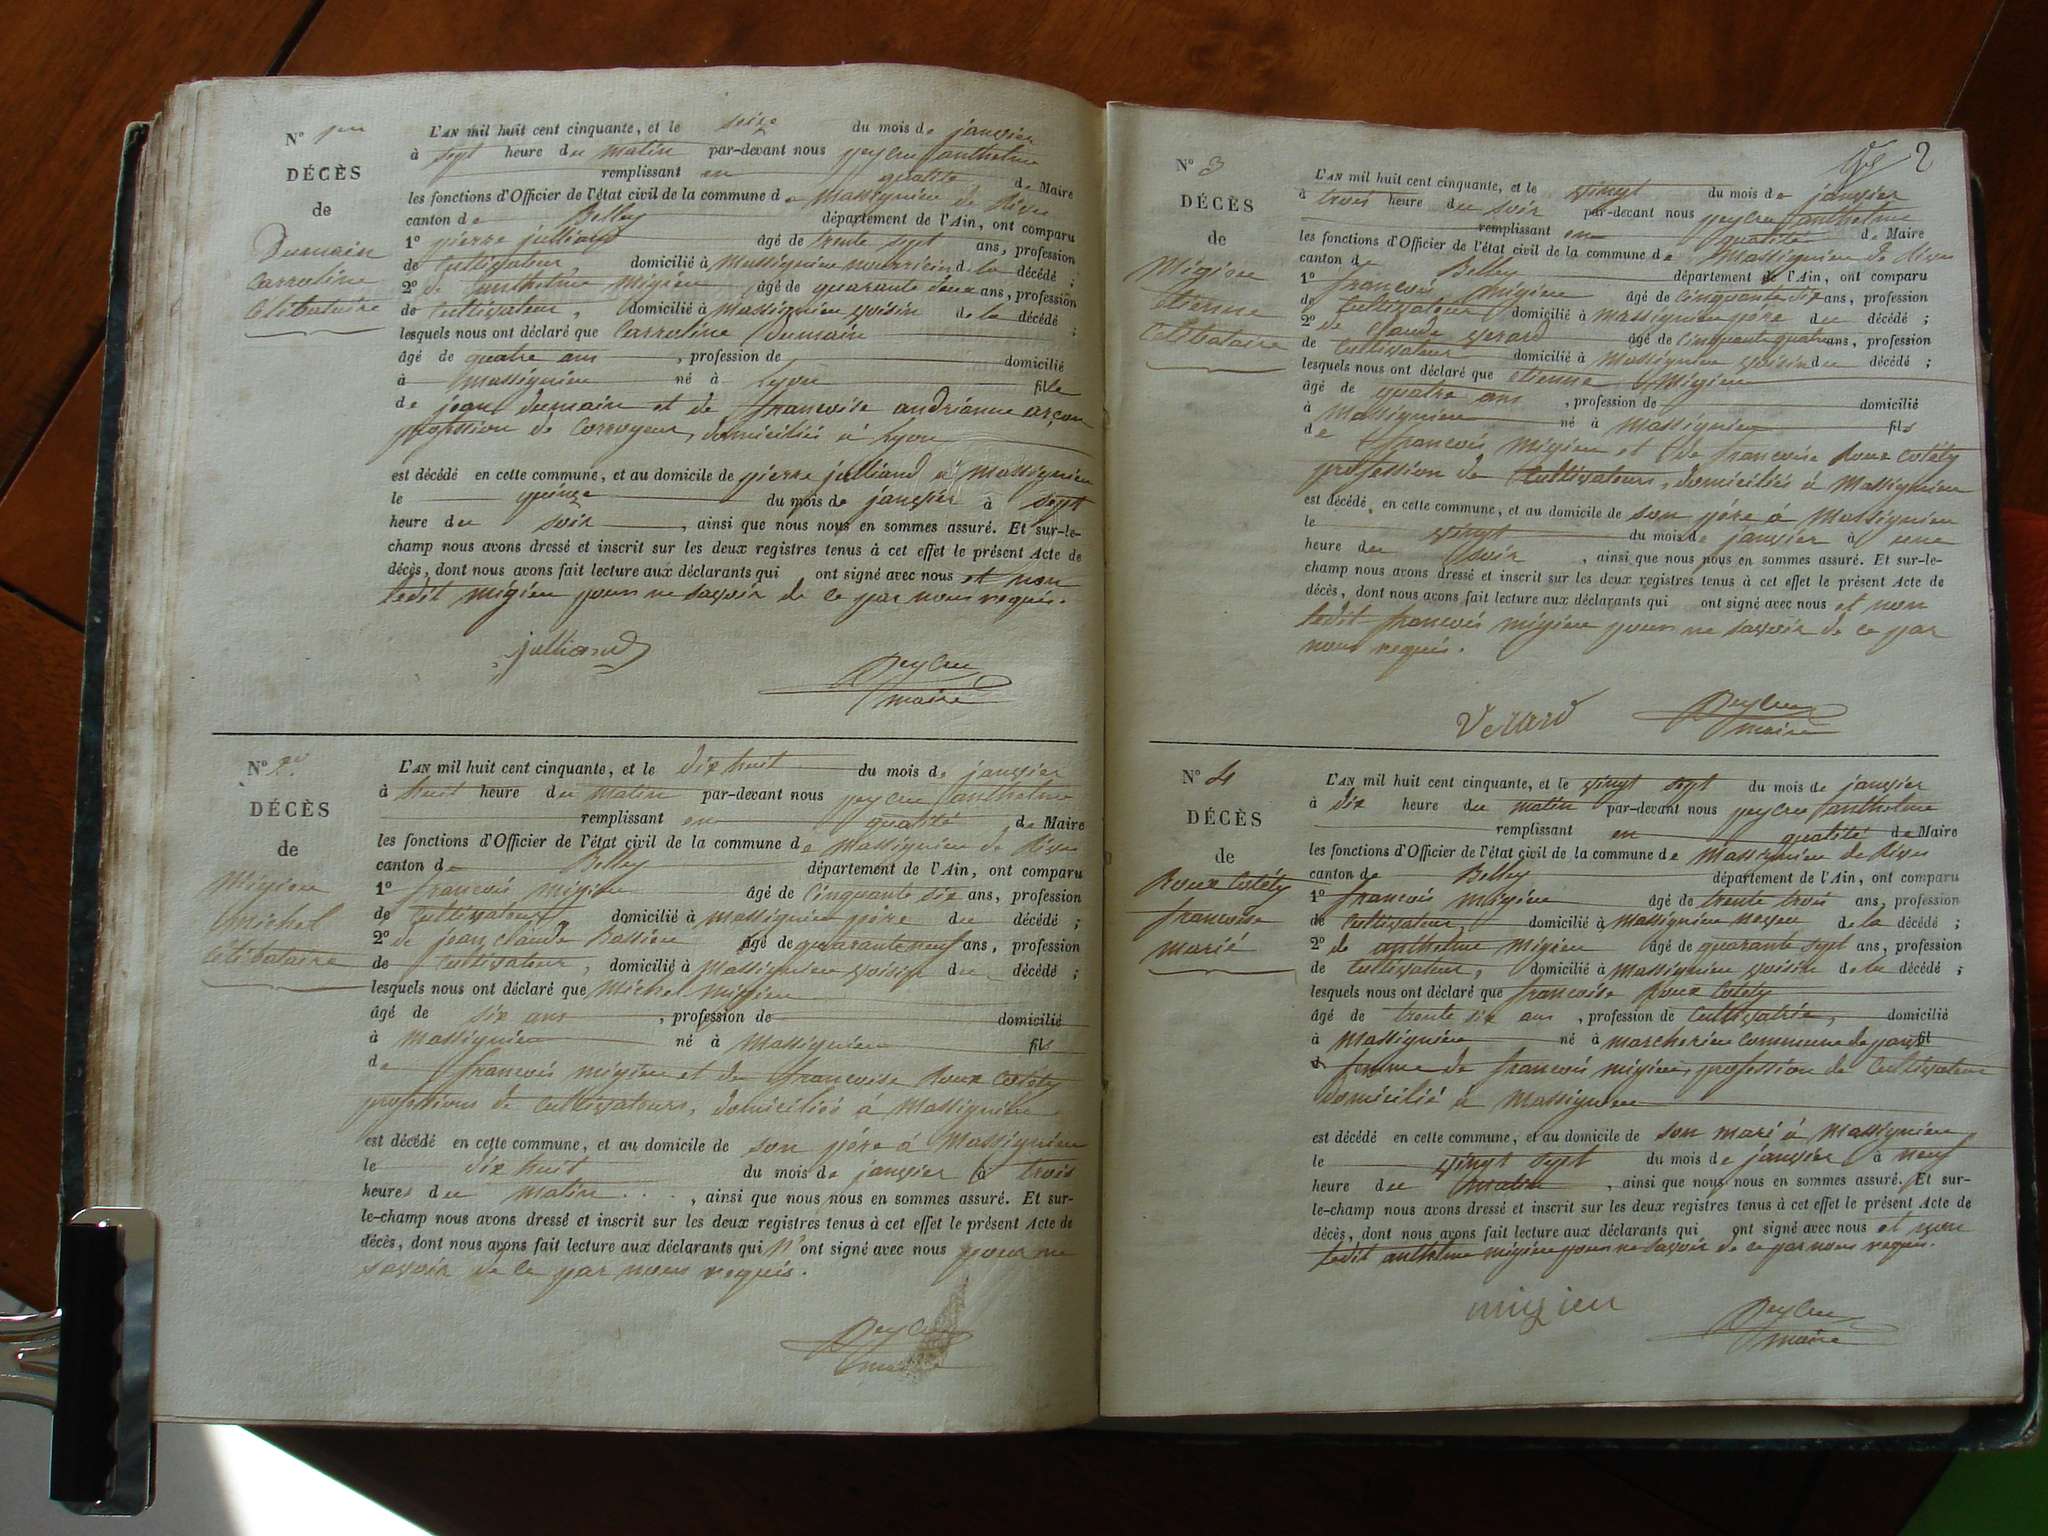 N° 1er
DÉCÈS
de
Dumain
Carroline
Célibataire
L'AN mil huit cent cinquante, et le seize du mois de janvier
à sept heure du matin par-devant nous peycru anthelme
remplissant en qualité de Maire
les fonctions d'Officier de l'état civil de la commune de Massignieu de Rives
canton de Belley département de l'Ain, ont comparu
1° pierre julliand âgé de trente sept ans, profession
de Cultivateur, domicilié à Massignieu nourricier d la décédé ;
2° de anthelme migieu âgé de quarante deux ans, profession
de Cultivateur, domicilié à Massignieu voisin de la décédé ;
lesquels nous ont déclaré que Carroline Dumain
âgé de quatre ans , profession de domicilié
à Massignieu né à Lyon fille
de jean dumain et de francoise andrianne arçon
profession de Corroyeur, domiciliés à Lyon
est décédé en cette commune, et au domicile de pierre julliand à Massignieu
le quinze du mois de janvier à sept
heure du soir , ainsi que nous nous en sommes assuré. Et sur-le-
champ nous avons dressé et inscrit sur les deux registres tenus à cet effet le présent Acte de
décès, dont nous avons fait lecture aux déclarants qui ont signé avec nous et non
ledit migieu pour ne savoir de ce par nous requis.
julliand
Peycru
maire
N° 2
DÉCÈS
de
Migieu
michel
célibataire
L'AN mil huit cent cinquante, et le dix huit du mois de janvier
à huit heure du matin par-devant nous peycru anthelme
remplissant en qualité de Maire
les fonctions d'Officier de l'état civil de la commune de Massignieu de Rives
canton de Belley département de l'Ain, ont comparu
1° francois migieu âgé de Cinquante six ans, profession
de Cultivateur, domicilié à Massignieu père du décédé ;
2° de jean claude Bassieu âgé de quarante neuf ans, profession
de Cultivateur, domicilié à Massignieu voisin du décédé ;
lesquels nous ont déclaré que Michel migieu
âgé de six ans , profession de domicilié
à Massignieu né à Massignieu fils
de francois migieu et de francoise Roux Cotéty
professions de Cultivateurs, domiciliés à Massignieu
est décédé en cette commune, et au domicile de son père à Massignieu
le dix huit du mois de janvier à trois
heures du matin , ainsi que nous nous en sommes assuré. Et sur-
le-champ nous avons dressé et inscrit sur les deux registres tenus à cet effet le présent Acte de
décès, dont nous avons fait lecture aux déclarants qui n'ont signé avec nous pour ne
savoir de ce par nous requis.
Peycru
maire
2
N° 3
DÉCÈS
de
Migieu
étienne
Célibataire
L'AN mil huit cent cinquante, et le vingt du mois de janvier
à trois heure du soir par-devant nous peycru anthelme
remplissant en qualité de Maire
les fonctions d'Officier de l'état civil de la commune de Massignieu de Rives
canton de Belley département de l'Ain, ont comparu
1° francois migieu âgé de Cinquante six ans, profession
de Cultivateur, domicilié à Massignieu père du décédé ;
2° de claude verard âgé de Cinquante quatre ans, profession
de Cultivateur domicilié à Massignieu voisin du décédé ;
lesquels nous ont déclaré que étienne Migieu
âgé de quatre ans , profession de domicilié
à Massignieu né à Massignieu fils
de francois migieu et de francoise Roux Cotéty
profession de Cultivateurs, domiciliés à Massignieu
est décédé, en cette commune, et au domicile de son père à Massignieu
le vingt du mois de janvier à une
heure du soir , ainsi que nous nous en sommes assuré. Et sur-le-
champ nous avons dressé et inscrit sur les deux registres tenus à cet effet le présent Acte de
décès, dont nous avons fait lecture aux déclarants qui ont signé avec nous et non
ledit francois migieu pour ne savoir de ce par
nous requis.
Verard
Peycru
maire
N° 4
DÉCÈS
de
Roux Cotéty
francoise
marié
L'AN mil huit cent cinquante, et le vingt sept du mois de janvier
à dix heure du matin par-devant nous peycru anthelme
remplissant en qualité de Maire
les fonctions d'Officier de l'état civil de la commune de Massignieu de Rives
canton de Belley département de l'Ain, ont comparu
1° francois migieu âgé de trente trois ans, profession
de Cultivateur, domicilié à Massignieu neveu de la décédé ;
2° de anthelme migieu âgé de quarante sept ans, profession
de Cultivateur, domicilié à Massignieu voisin de la décédé ;
lesquels nous ont déclaré que francoise Roux Cotéty
âgé de trente six ans , profession de Cultivatrice, domicilié
à Massignieu né à marcherieu Commune de fil
d femme de francois migieu, profession de Cultivateur
domicilié à Massignieu
est décédé en cette commune, et au domicile de son mari à Massignieu
le vingt sept du mois de janvier à neuf
heure du matin , ainsi que nous nous en sommes assuré. Et sur-
le-champ nous avons dressé et inscrit sur les deux registres tenus à cet effet le présent Acte de
décès, dont nous avons fait lecture aux déclarants qui ont signé avec nous et non
ledit anthelme migieu pour ne savoir de ce par nous requis.
migieu
Peycru
maire